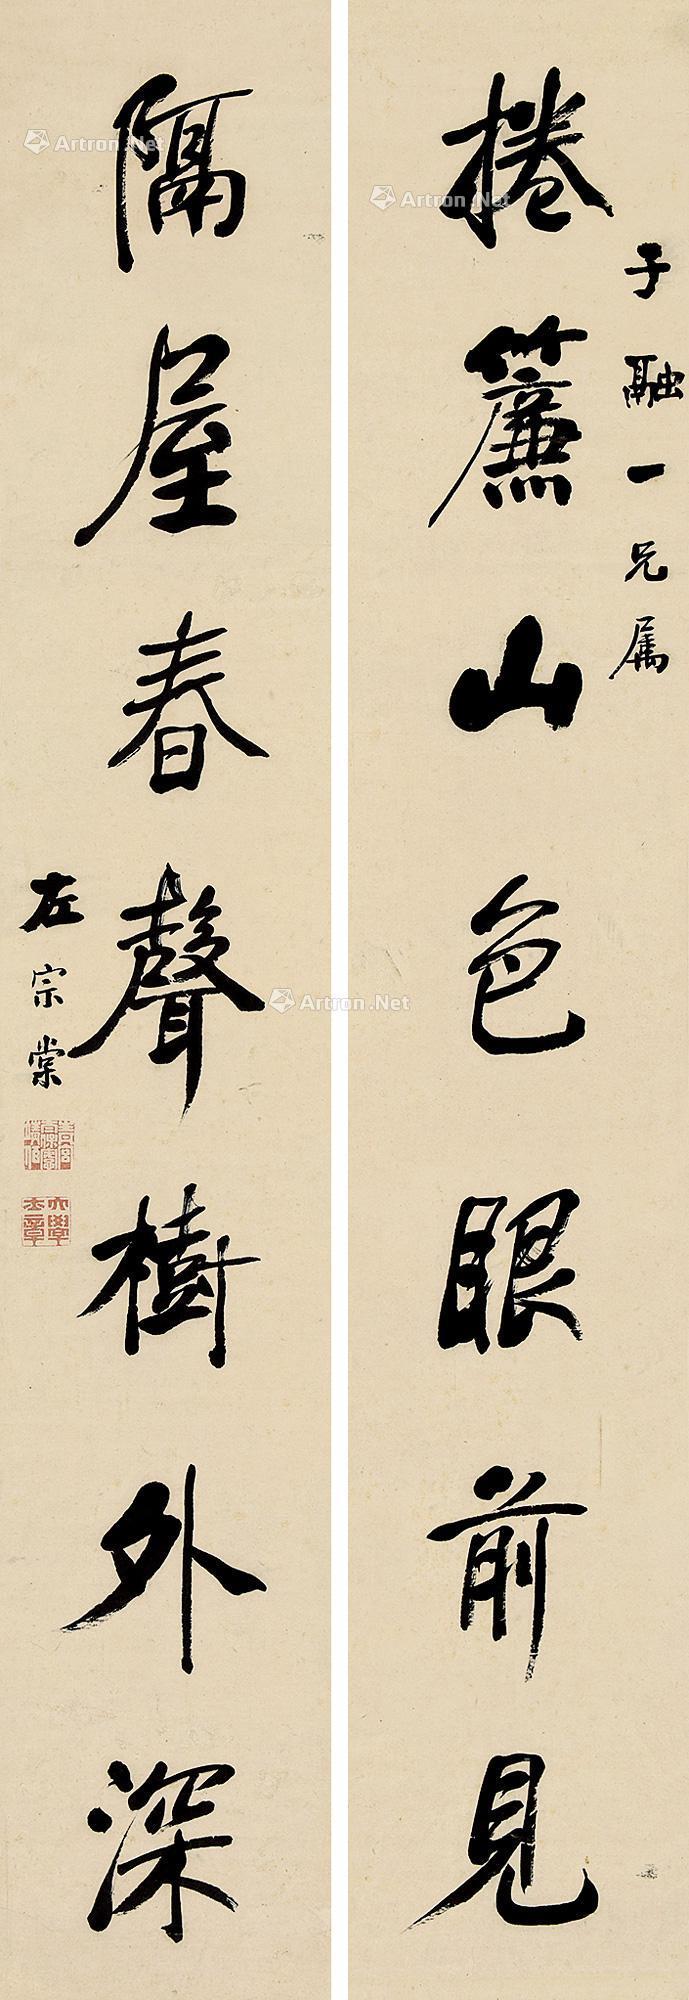 子融一兄属
捲簾山色眼前見
隔屋春聲樹外深
左宗棠
Artron.Net
Artron.Net
Artron.Net